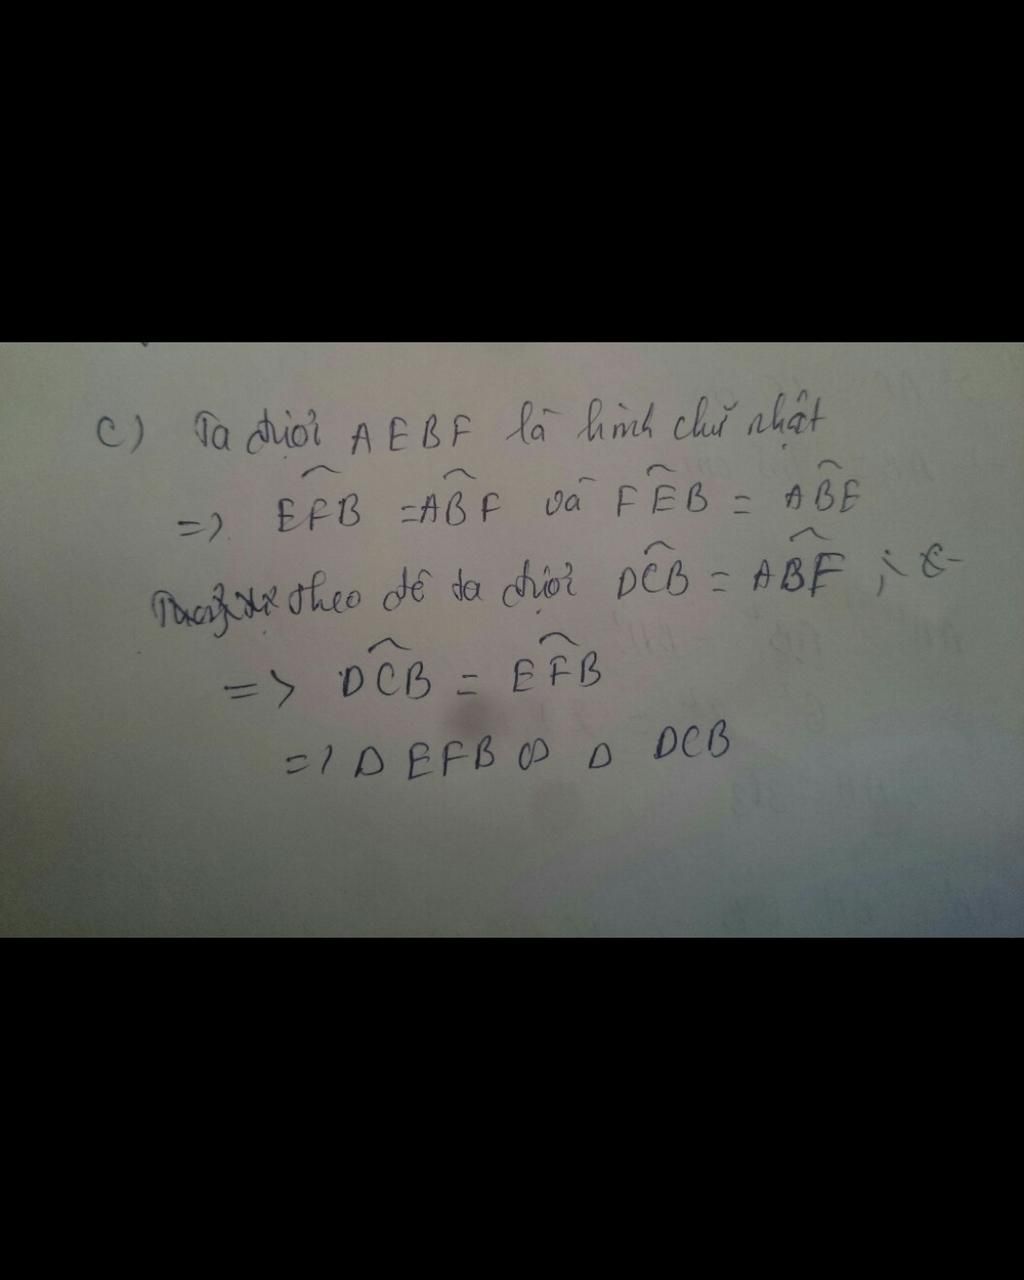 c) Ta được AEBF là hình chữ nhật
=> EFB = ABF và FEB = ABE
theo đề ta được DCB = ABF ;
=> DCB = EFB
=> Δ EFB ∽ Δ DCB